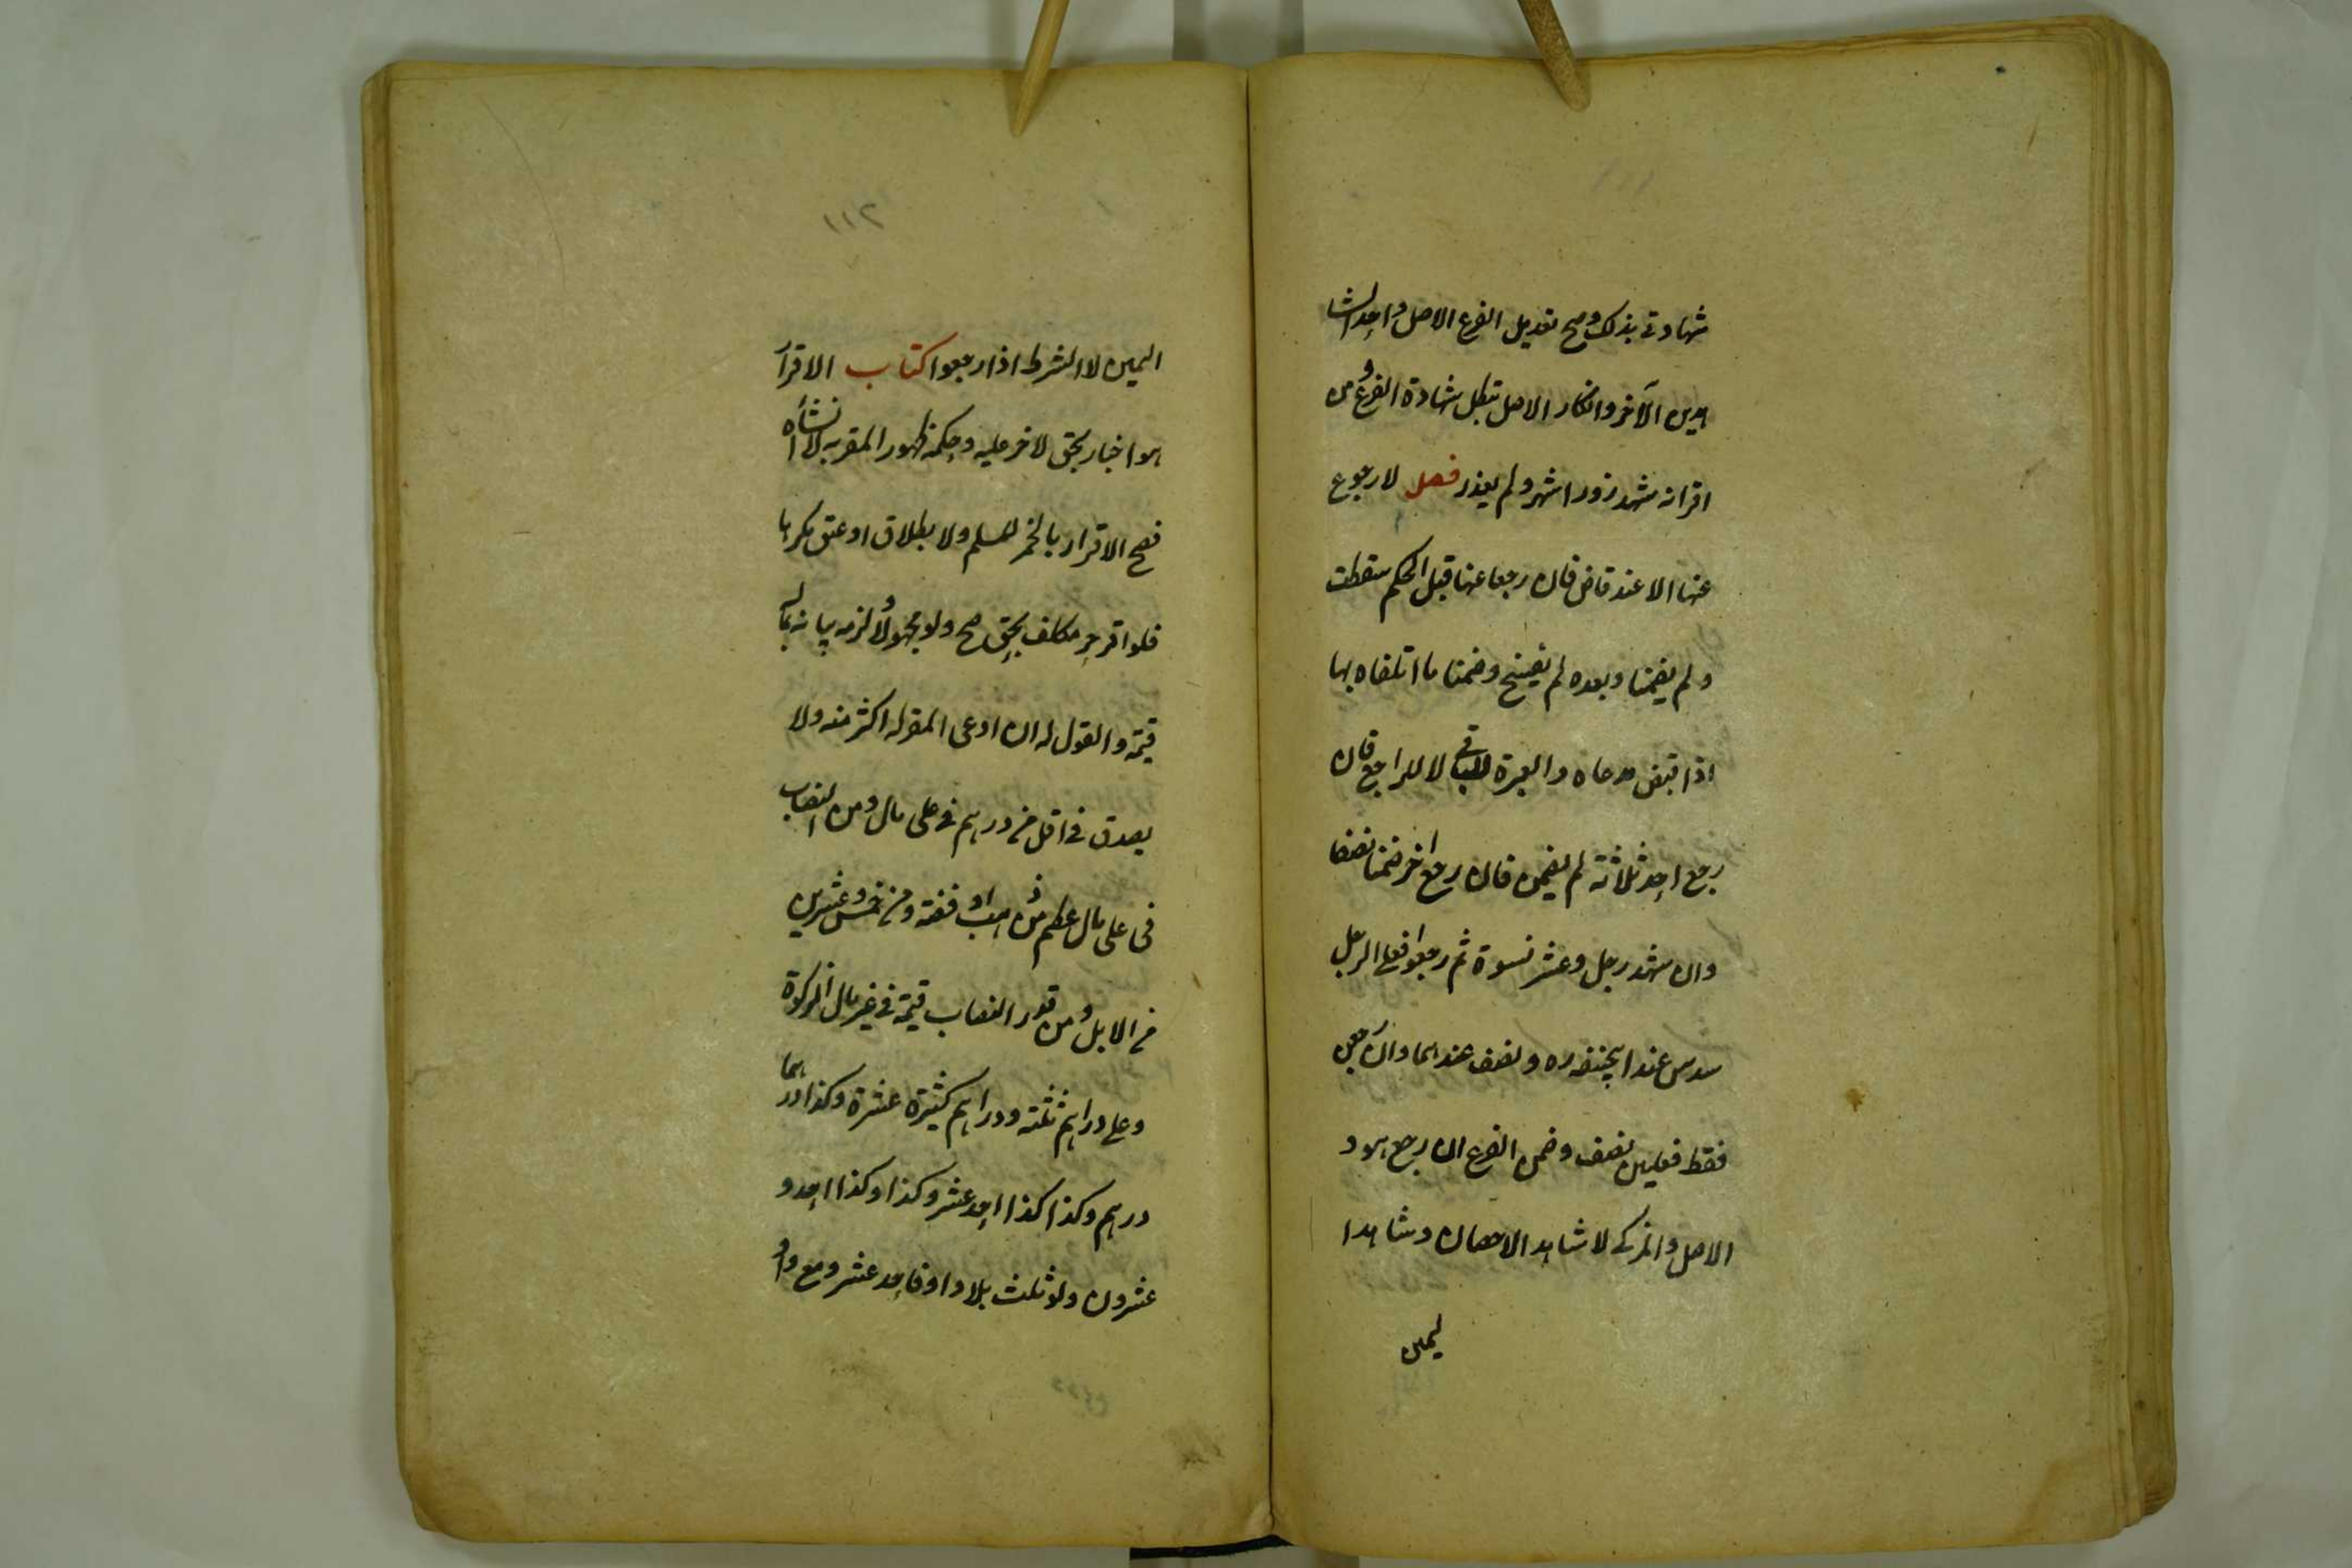 شهادتى بذلك وصح تعديل الفرع الاصل واحد الشا
هدين الآخر وانكار الاصل يبطل شهادة الفرع ومن
اقر انه شهد زورا شهر ولم يعذر فصل لا رجوع
عنها الا عند قاض فان رجعا عنها قبل الحكم سقطت
ولم يضمنا وبعده لم يفسخ وضمنا ما اتلفاه بها
اذا قبض مدعاه والعبرة للباقى لا للراجع فان
رجع احد ثلاثة لم يضمن فان رجع اخر ضمنا نصفا
وان شهد رجل وعشر نسوة ثم رجعوا فعلى الرجل
سدس عند ابيحنيفه ره ونصف عندهما وان رجعن
فقط فعليهن نصف وضمن الفرع ان رجع هو و
الاصل والمزكى لا شاهد الاحصان وشاهدا
اليمين
٢١١
اليمين لا الشرط اذا رجعوا كتاب الاقرار
هو اخبار بحق لاخر عليه وحكمه ظهور المقر به لا انشاه
فصح الاقرار بالخمر للمسلم ولا بطلاق او عتق مكرها
فلو اقر حر مكلف بحق صح ولو مجهولا ولزمه بيانه بماله
قيمة والقول له ان ادعى المقر له اكثر منه ولا
يصدق فى اقل من درهم فى على مال ومن النصاب
فى على مال عظيم من ذهب او فضة ومن خمس وعشرين
من الابل ومن قدر النصاب قيمة فى غير مال الزكوة
وعلى دراهم ثلثة ودراهم كثيرة عشرة وكذا درهما
درهم وكذا كذا احد عشر وكذا وكذا احد و
عشرون ولو ثلث بلا واو فاحد عشر ومع واو